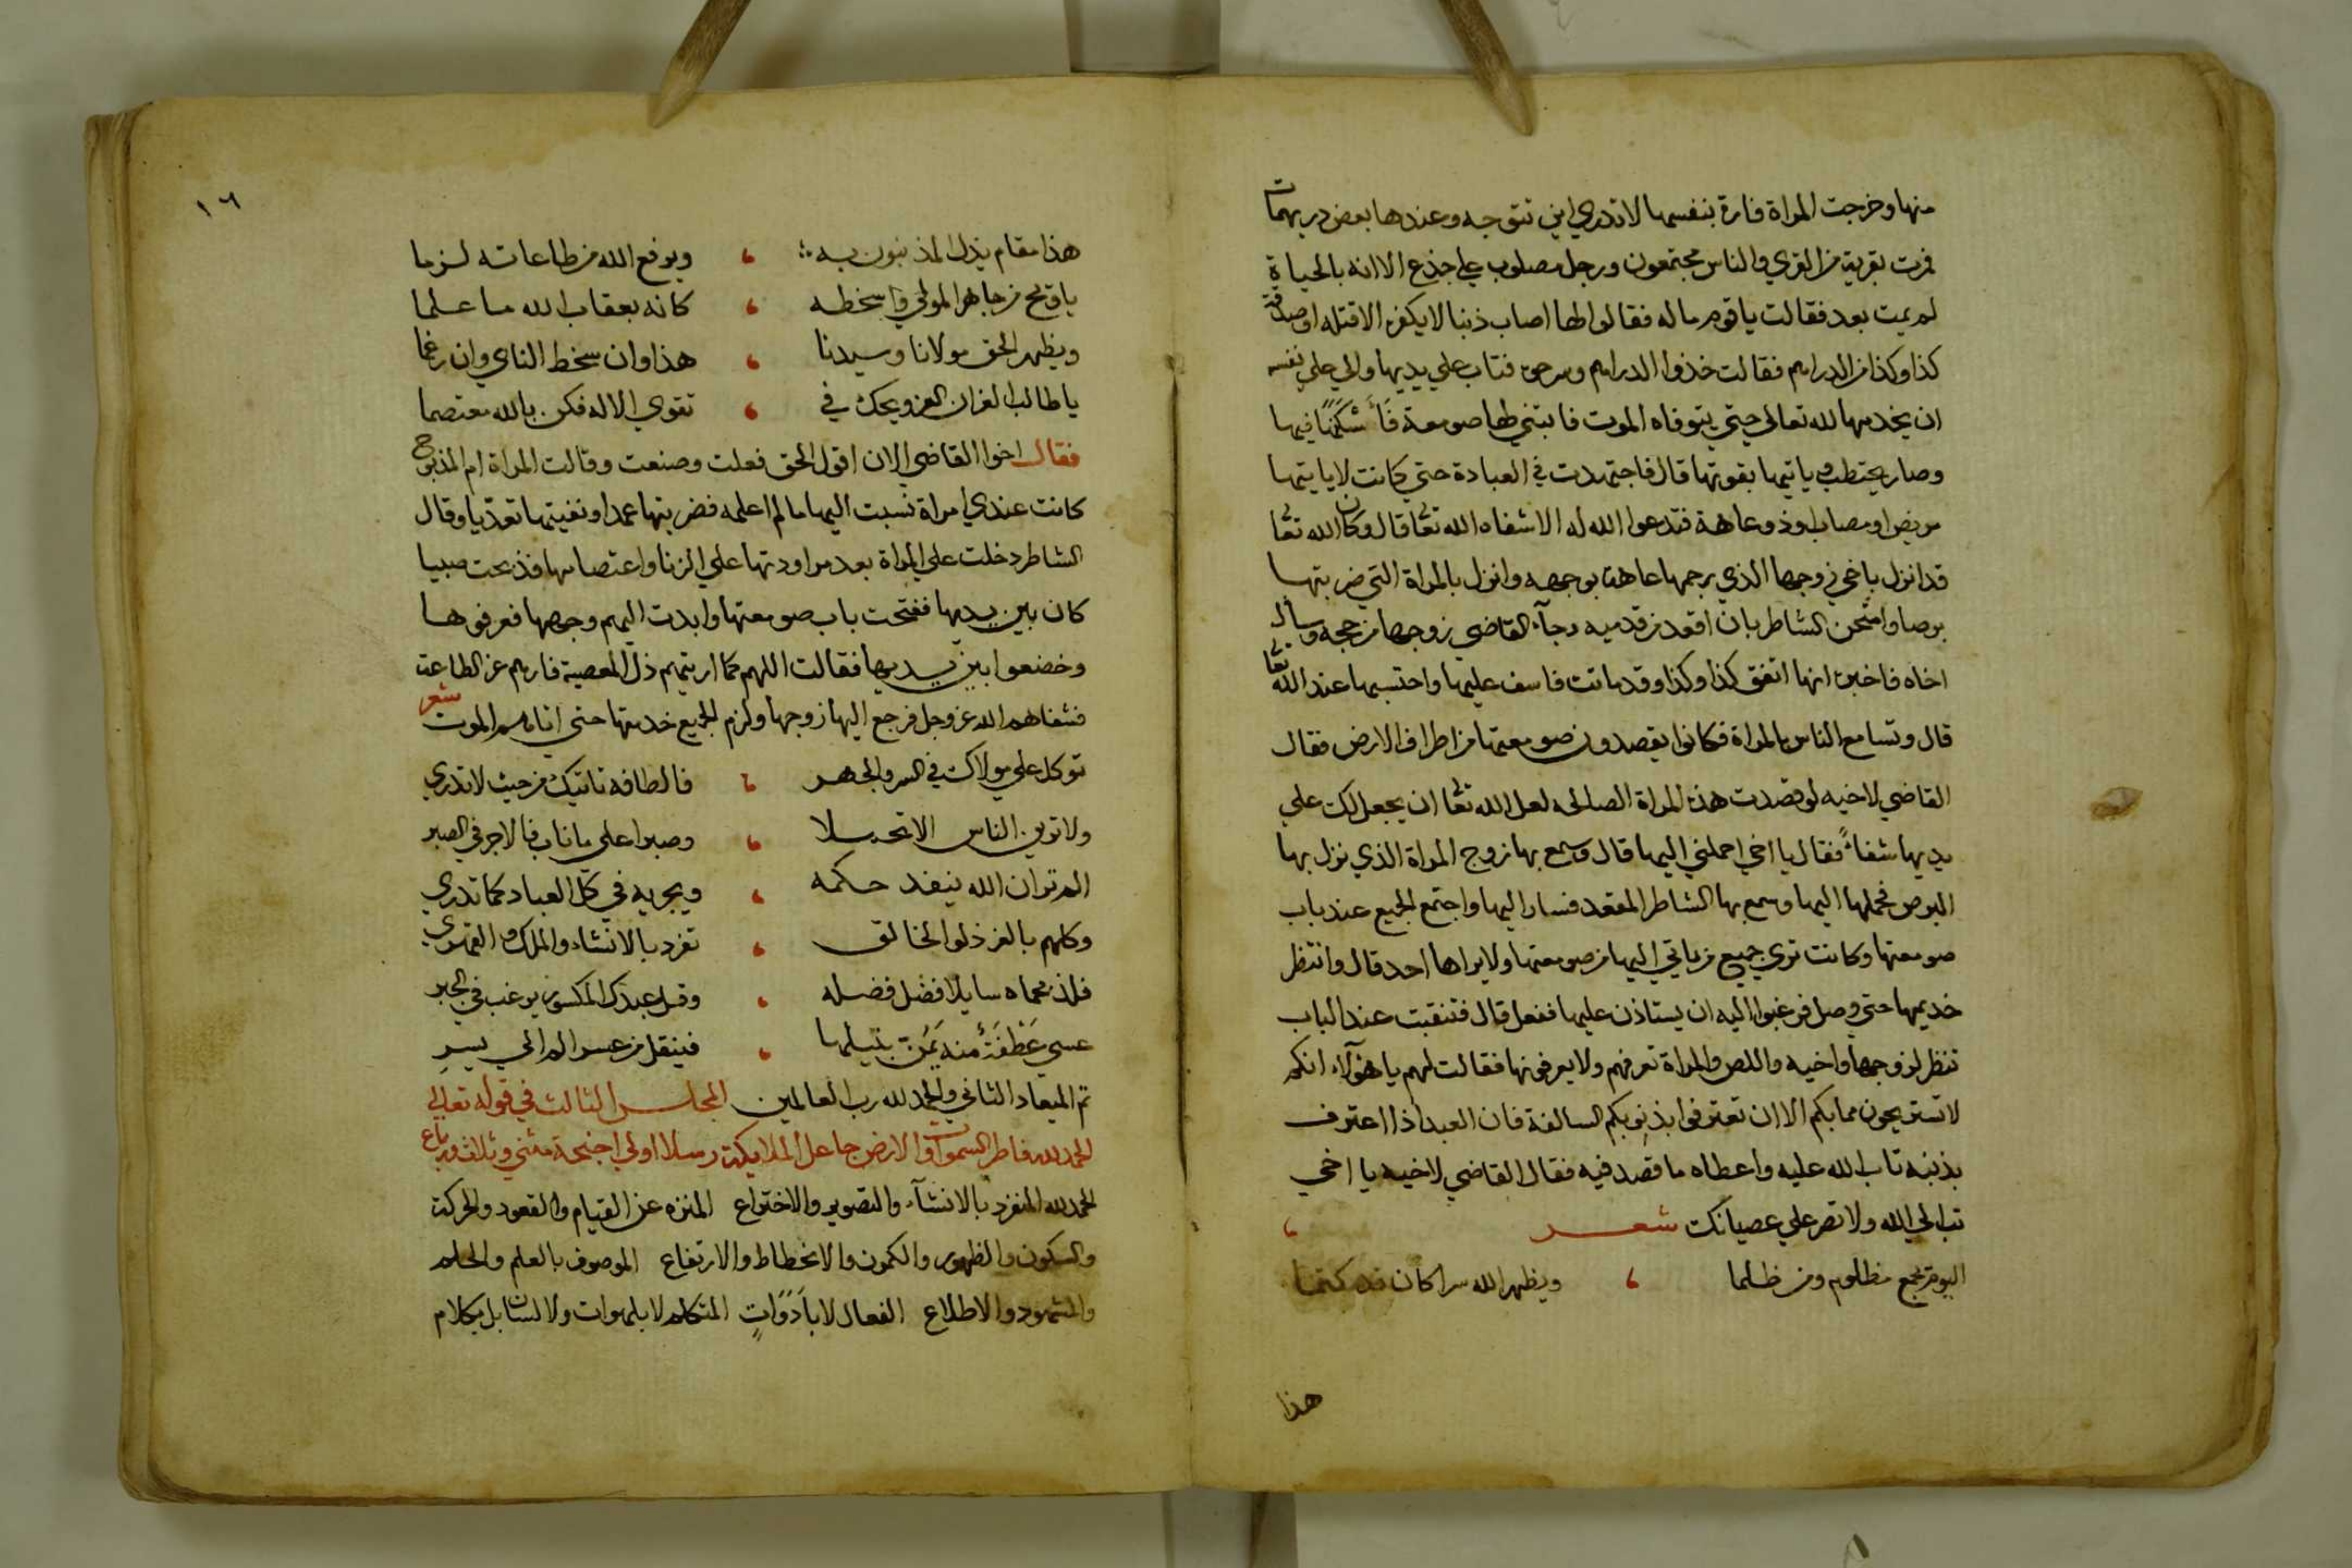 منها وخرجت المراة فارة بنفسها لا تدري اين تتوجه وعندها بعض دريهمات
فمرت بقرية من القري والناس مجتمعون ورجل مصلوب علي جذع الا انه بالحياة
لم يمت بعد فقالت يا قوم ما له فقالوا لها اصاب ذنبا لا يكفره الا قتله او صدقة
كذا وكذا من الدراهم فقالت خذوا الدراهم وسرحوه فتاب علي يديها والي علي نفسه
ان يخدمها لله تعالى حتي يتوفاه الموت فابتني لها صومعة فأسكنها فيها
وصار يحتطب وياتيها بقوتها قال فاجتهدت في العبادة حتي كانت لا ياتيها
مريض او مصاب او ذو عاهة فتدعوا الله له الا شفاه الله تعا قال وكان الله تعا
قد انزل باخي زوجها الذي رجمها عاهة بوجهه وانزل بالمراة التي ضربتها
برصا وامتحن الشاطر بان اقعد من قدميه وجآء القاضي زوجها من حجه وسال
اخاه فاخبره انها اتفق كذا وكذا وقد ماتت فاسف عليها واحتسبها عند الله تعا
قال وتسامع الناس بالمراة فكانوا يقصدون صومعتها من اطراف الارض فقال
القاضي لاخيه لو قصدت هذه المراة الصالحه لعل الله تعا ان يجعل لك علي
يديها شفاءً فقال يا اخي احملني اليها قال وسمع بها زوج المراة الذي نزل بها
البرص فحملها اليها وسمع بها الشاطر المقعد فسار اليها واجتمع الجميع عند باب
صومعتها وكانت تري جميع من ياتي اليها من صومعتها ولا يراها احد قال وانتظر
خديمها حتي وصل فرغبوا اليه ان يستاذن عليها ففعل قال فتنقبت عند الباب
تنظر لزوجها واخيه واللص والمراة تعرفهم ولا يعرفونها فقالت لهم يا هؤلاء انكم
لا تستريحون مما بكم الا ان تعترفوا بذنوبكم السالفة فان العبد اذا اعترف
بذنبه تاب الله عليه واعطاه ما قصد فيه فقال القاضي لاخيه يا اخي
تب الي الله ولا تصر علي عصيانك شعر
اليوم يجمع مظلوم ومن ظلما ، ويظهر الله سرا كان قد كتما
هذا
١٦
هذا مقام يذل المذنبون به ، ويرفع الله من طاعاته لزما
يا قبح من جاهر المولي واسخطه ، كانه بعقاب الله ما علما
ويظهر الحق مولانا وسيدنا ، هذا وان سخط الناس وان رغما
يا طالب الغفران العز ويحك في ، تقوي الاله فكن بالله معتصما
فقال اخوا القاضي الان اقول الحق فعلت وصنعت وقالت المراة ام المذبوح
كانت عندي امراة نسبت اليها ما لم اعلمه فضربتها عمدا ونفيتها تعديا وقال
الشاطر دخلت علي المراة بعد مراودتها علي الزنا واعتصامها فذبحت صبيا
كان بين يديها ففتحت باب صومعتها وابدت اليهم وجهها فعرفوها
وخضعوا بين يديها فقالت اللهم كما اريتهم ذل المعصية فارهم عز الطاعة
فشفاهم الله عز وجل فرجع اليها زوجها ولزم الجميع خدمتها حتي اتاهم الموت شعر
توكل علي مولاك في السر والجهر ، فالطافه تاتيك من حيث لا تدري
ولا ترين الناس الا تجملا ، وصبرا علي ما ناب فالاجر في الصبر
الم تر ان الله ينفد حكمه ، ويجريه في كل العباد كما تدري
وكلهم بالعز ذلوا لخالق ، تفرد بالانشاء والملك والقهر
فلذ بحماه سايلا فضل فضله ، وقل عبدك المكسور يرغب في الجبر
عسي عَطْفَةٌ منه يَمُنّ بنيلها ، فينقل من عسر الم الي يسر
تم الميعاد الثاني والحمد لله رب العالمين المجلس الثالث في قوله تعالى
الحمد لله فاطر السموات والارض جاعل الملايكة رسلا اولي اجنحة مثني وثلاث ورباع
الحمد لله المنفرد بالانشآء والتصوير والاختراع المنزه عن القيام والقعود والحركة
والسكون والظهور والكمون والانحطاط والارتفاع الموصوف بالعلم والحلم
والشهود والاطلاع الفعال لا بأدوات المتكلم لا بلهوات ولا لسان بل بكلام